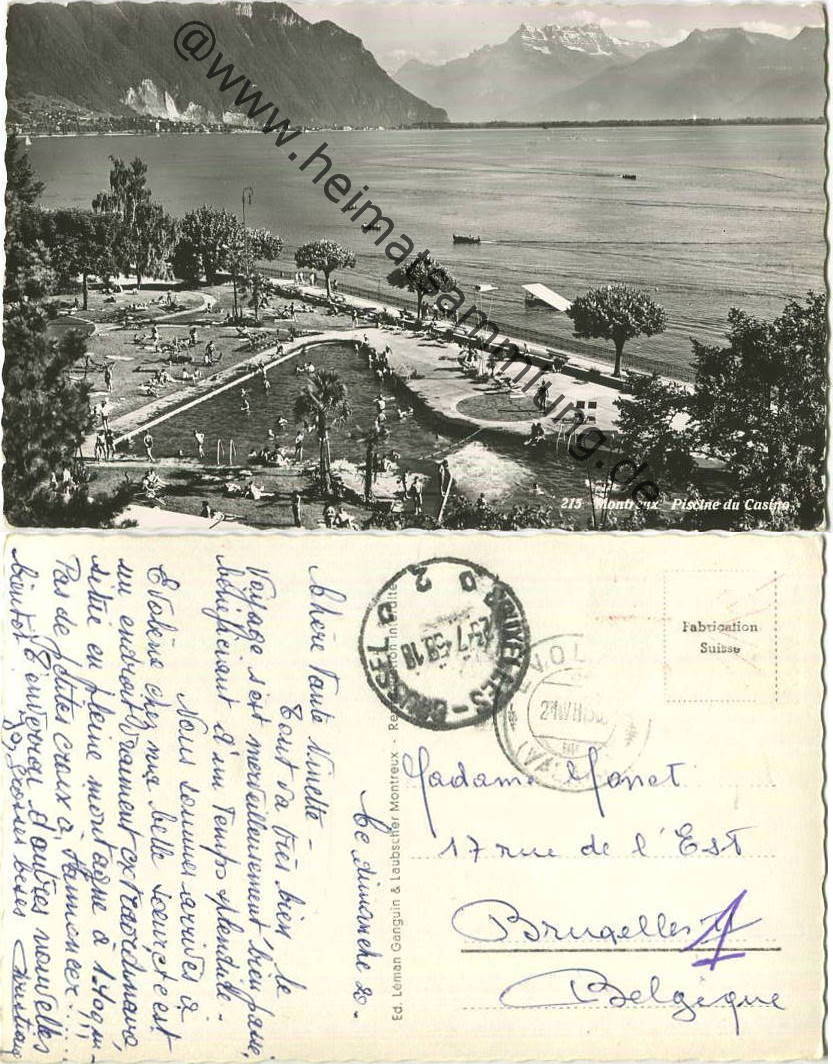 @www.heimatsammlung.de
215 Montreux. Piscine du Casino
Le dimanche 20-
Chère Tante Ninette -
Tout va très bien, le
Voyage s'est merveilleusement bien passé,
bénéficiant d'un Temps splendide -
Nous sommes arrivés à
Evolène chez ma belle soeur, c'est
un endroit vraiment extraordinaire,
situé en pleine montagne à 1.400 m -
Pas de petites croix à
Bientôt, J'enverrai d'autres nouvelles
Grosses bises Christiane
Ed. Léman Ganguin & Laubscher Montreux - Reproduction interdite
BRUXELLES - BRUSSEL
D 2 D
23-7-58 18
EVOL
21 VII 58
(VA
Fabrication
Suisse
Madame Monet
17 rue de l'Est
Bruxelles
Belgique